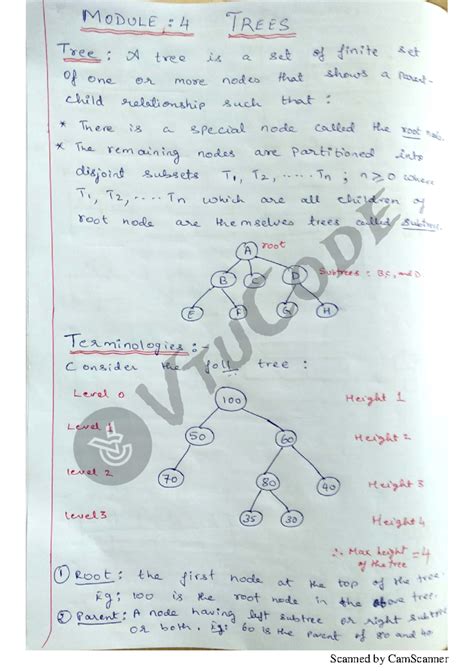 MODULE : 4 TREES
Tree : A tree is a set of finite set
of one or more nodes that shows a parent-
child relationship such that :
* There is a special node called the root node.
* The remaining nodes are partitioned into
disjoint subsets T1, T2, ..... Tn ; n≥0 where
T1, T2, .... Tn which are all children of
root node are themselves trees called subtree.
A root
B C D Subtrees : B,C, and D.
E F G H
VTUCODE
Terminologies :-
Consider the foll tree :
Level 0 100 Height 1
Level 1 50 60 Height 2
level 2 70 80 40 Height 3
level 3 35 30 Height 4
∴ Max height = 4
of the tree
1 Root : the first node at the top of the tree.
Eg: 100 is the root node in the above tree.
2 Parent : A node having left subtree or right subtree
or both. Eg: 60 is the parent of 80 and 40.
Scanned by CamScanner